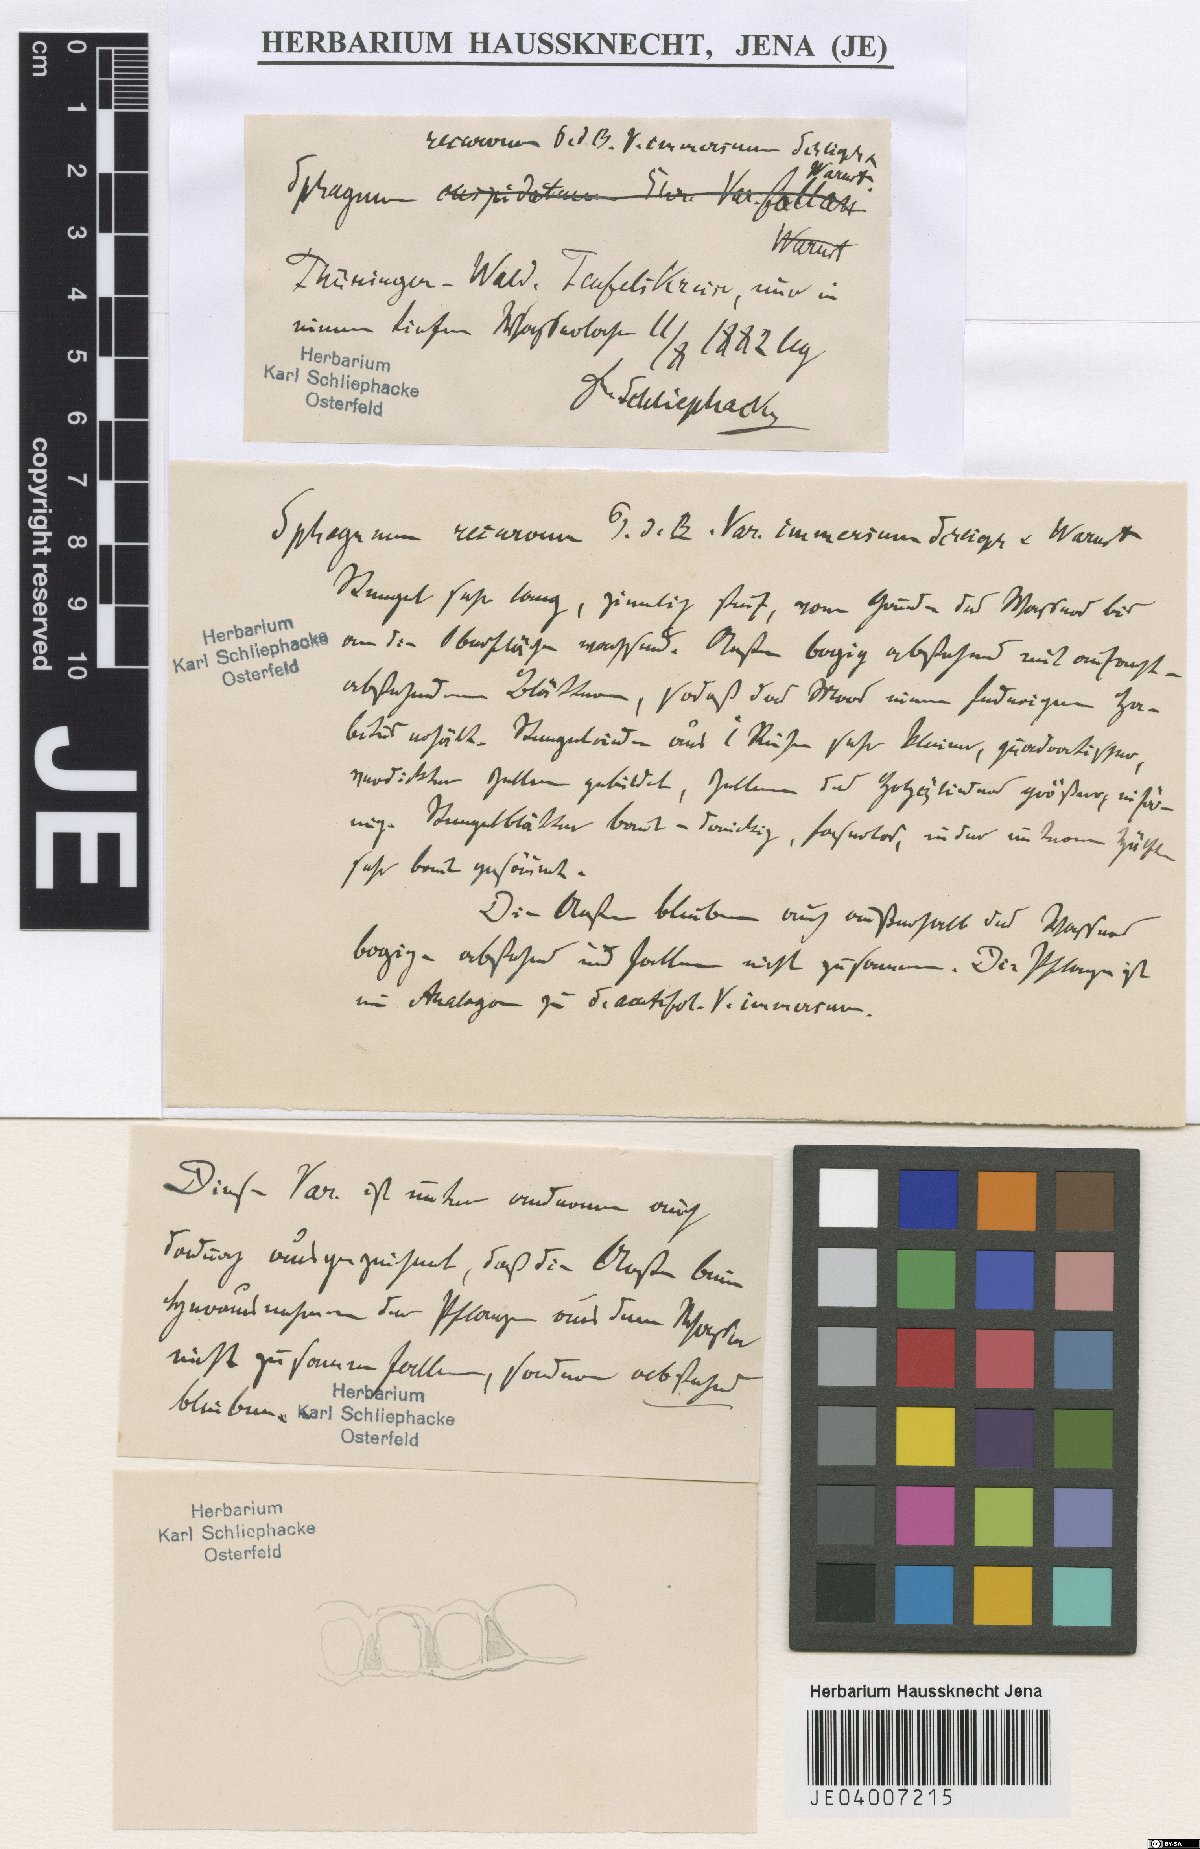 HERBARIUM HAUSSKNECHT, JENA (JE)
cm 0 1 2 3 4 5 6 7 8 9 10
copyright reserved
JE
recurvum P. d. B. V. immersum Schlieph &
Warnst.
Sphagnum cuspidatum Ehr. Var. fallax
Warnst
Thüringer-Wald. Teufelskreise, nur in
einem tiefen Wasserloche 11/8 1882 leg
Dr. Schliephacke
Herbarium
Karl Schliephacke
Osterfeld
Sphagnum recurvum P. d. B. Var. immersum Schlieph & Warnst
Stengel sehr lang, ziemlich steif, vom Grunde des Wassers bis
an die Oberfläche wachsend. Aeste bogig abstehend mit aufrecht-
abstehenden Blättern, sodaß das Moos einen federigen Ha-
bitus erhält. Stengelrinde aus 1 Reihe sehr kleiner, quadratischer,
verdickter Zellen gebildet, Zellen des Holzcylinders größer,
Stengelblätter breit-dreieckig, faserlos, in der unteren Hälfte
sehr breit gesäumt.
Die Aeste bleiben auch außerhalb des Wassers
bogig abstehend und fallen nicht zusammen. Die Pflanze ist
ein Analogon zu S. acutifol. V. immersum.
Herbarium
Karl Schliephacke
Osterfeld
Diese Var. ist unter anderem auch
dadurch ausgezeichnet, daß die Aeste beim
Herausnehmen der Pflanze aus dem Wasser
nicht zusammen fallen, sondern abstehend
bleiben.
Herbarium
Karl Schliephacke
Osterfeld
Herbarium
Karl Schliephacke
Osterfeld
Herbarium Haussknecht Jena
JE04007215
BY-SA